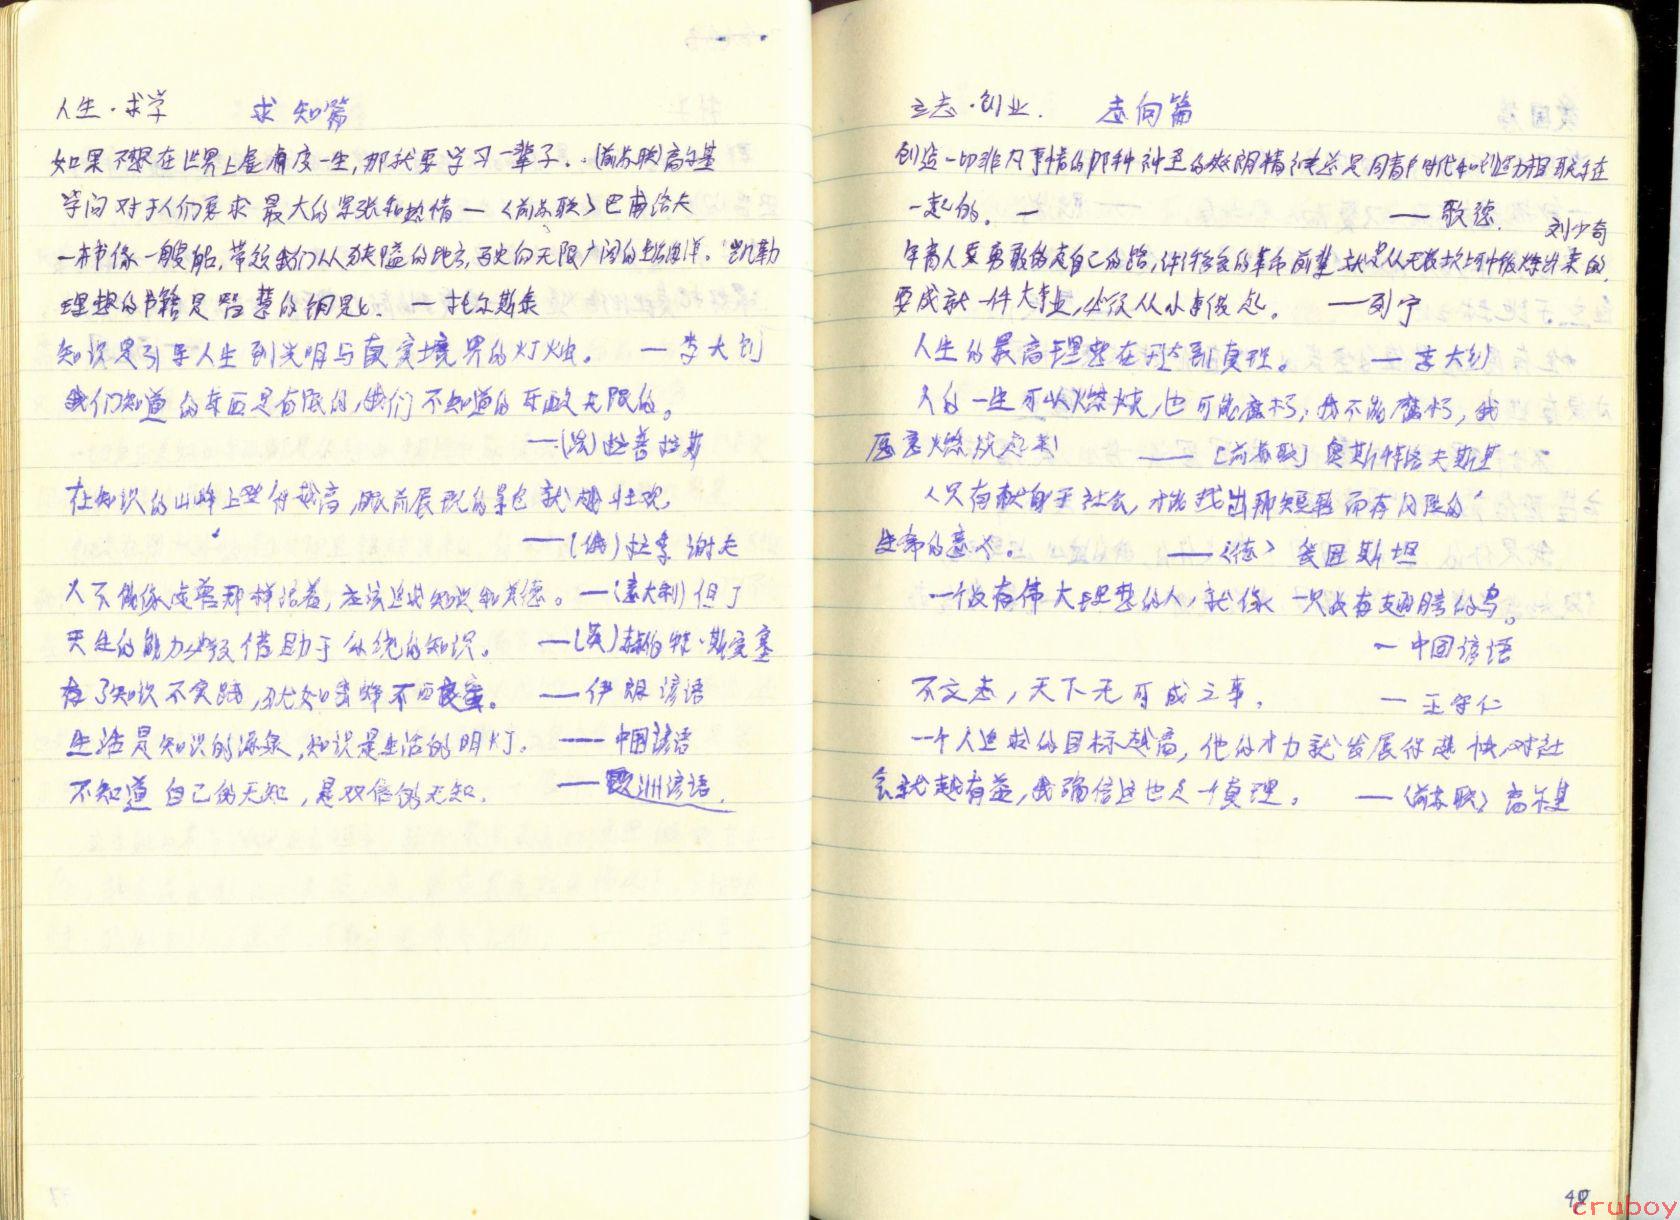 人生·求学 求知篇
如果不想在世界上虚度一生,那就要学习一辈子. (前苏联)高尔基
学问对于人们要求最大的紧张和热情—〈前苏联〉巴甫洛夫
一本书像一艘船,带领我们从狭隘的地方,驶向无限广阔的生活海洋。凯勒
理想的书籍是智慧的钥匙. —托尔斯泰
知识是引导人生到光明与真实境界的灯烛。 —李大钊
我们知道的东西是有限的,我们不知道的东西是无限的。
—(法)拉普拉斯
在知识的山峰上登得越高,眼前展现的景色就越壮观.
—(俄)拉季谢夫
人不能像走兽那样活着,应该追求知识和美德。—(意大利)但丁
天生的能力必须借助于系统的知识。 —(英)赫伯特·斯宾塞
有了知识不实践,犹如蜜蜂不酿蜜。 —伊朗谚语
生活是知识的源泉,知识是生活的明灯. —中国谚语
不知道自己的无知,是双倍的无知. —欧洲谚语.
立志·创业. 志向篇
创造一切非凡事情的那种神圣的爽朗精神总是同青年时代和创造力相联系在
一起的。— —歌德. 刘少奇
年青人要勇敢的走自己的路,许许多多的革命前辈就是从无数坎坷中锻炼出来的.
要成就一件大事业,必须从小事做起。 —列宁
人生的最高理想在求达到真理。 —李大钊
人的一生可以燃烧,也可能腐朽,我不能腐朽,我
愿意燃烧起来! —[前苏联]奥斯特洛夫斯基
人只有献身于社会,才能找出那短暂而有风险的
生命的意义。 —〈德〉爱因斯坦
一个没有伟大理想的人,就像一只没有翅膀的鸟。
—中国谚语
不立志,天下无可成之事. —王守仁
一个人追求的目标越高,他的才力就发展得越快,对社
会就越有益,我确信这也是一个真理。 —〈前苏联〉高尔基
48
cruboy